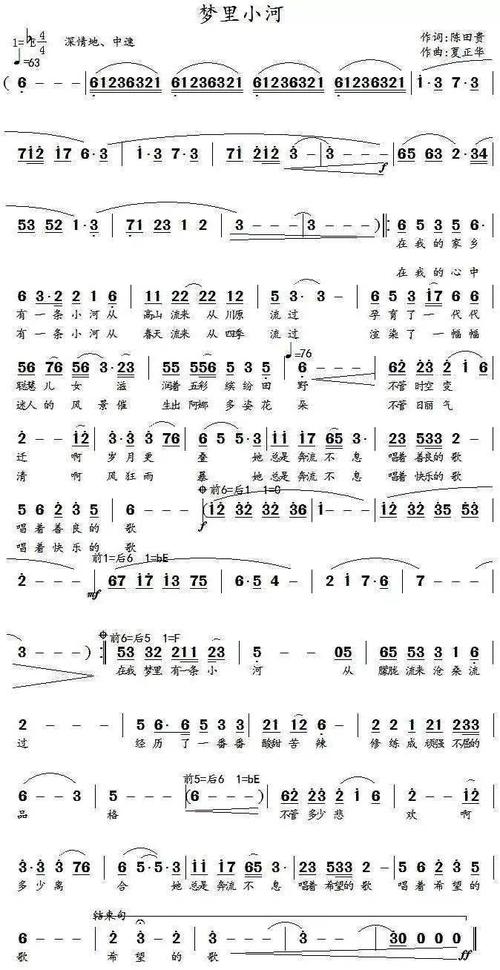 梦里小河
1=bE 4/4 深情地、中速
♩=63
作词:陈田贵
作曲:夏正华
( 6 - - - | 61236321 61236321 | 61236321 61236321 | i·3 7·3 |
7i2 i7 6·3 | i·3 7·3 | i7 2i2 3 | 3 - - - | 65 63 2·34 |
53 52 1·3 | 71 23 1 2 | 3 - - - | 3 - - - ) ‖: 6 5 3 5 6· |
在我的家乡
在我的心中
6 3·2 2 1 6 | 11 22 22 12 | 6 5 3 5 i7 6 |
有一条小河从 高山流来从川原 流过 孕育了一代代
有一条小河从 春天流来从四季 流过 渲染了一幅幅
56 76 56 | 356 56 5 3 5 | ♩=76 6 - - - | 62 23 2 i |
聪慧儿女 滋 润着五彩缤纷田 野 不管时空变
迷人的风景催 生出阿娜多姿花 朵 不管日丽气
2 - - i2 | 3·3 3 76 | 6·5 5 3 | ii i7 65 3· | 23 533 2 2 |
迁 啊 岁月更 叠 她总是奔流不息 唱着善良的歌
清 啊 风狂雨 暴 她总是奔流不息 唱着快乐的歌
前6=后1 1=G
5 6 2 3 5 | 6 - - - | (i2 32 32 36 |
唱着善良的 歌
唱着快乐的 歌
前1=后6 1=bE
2 - - - | 67 i7 i3 75 | 6·5 4 - | 2 i 7·6 | 7 - - - |
前6=后5 1=F
3 - - - ) :‖ 53 32 211 23 | 5 - - 05 | 65 35 |
在我梦里有一条小 河 从 朦胧流来沧桑流
2 - - - | 5 6· 5 3 5 | 21 12 6 | 2 i 2 233 |
过 经历了一番番 酸甜苦辣 修炼成顽强不屈的
前5=后6 1=bE
6 - - 3 | 5 - - - | (6 - - -) | 62 23 2 i 6 | 2 - - i2 |
品 格 不管多少悲 欢 啊
3·3 3 76 | 6·5 5 3 | ii i7 65 3· | 23 533 2 2 | 5 6 2 3 5 |
多少离 合 她总是奔流不息 唱着希望的歌 唱着希望的
结束句
6 - - - | 2 3 - 2 | 3 - - - | 3 - - - | 30 0 0 0 ‖
歌 希望的 歌